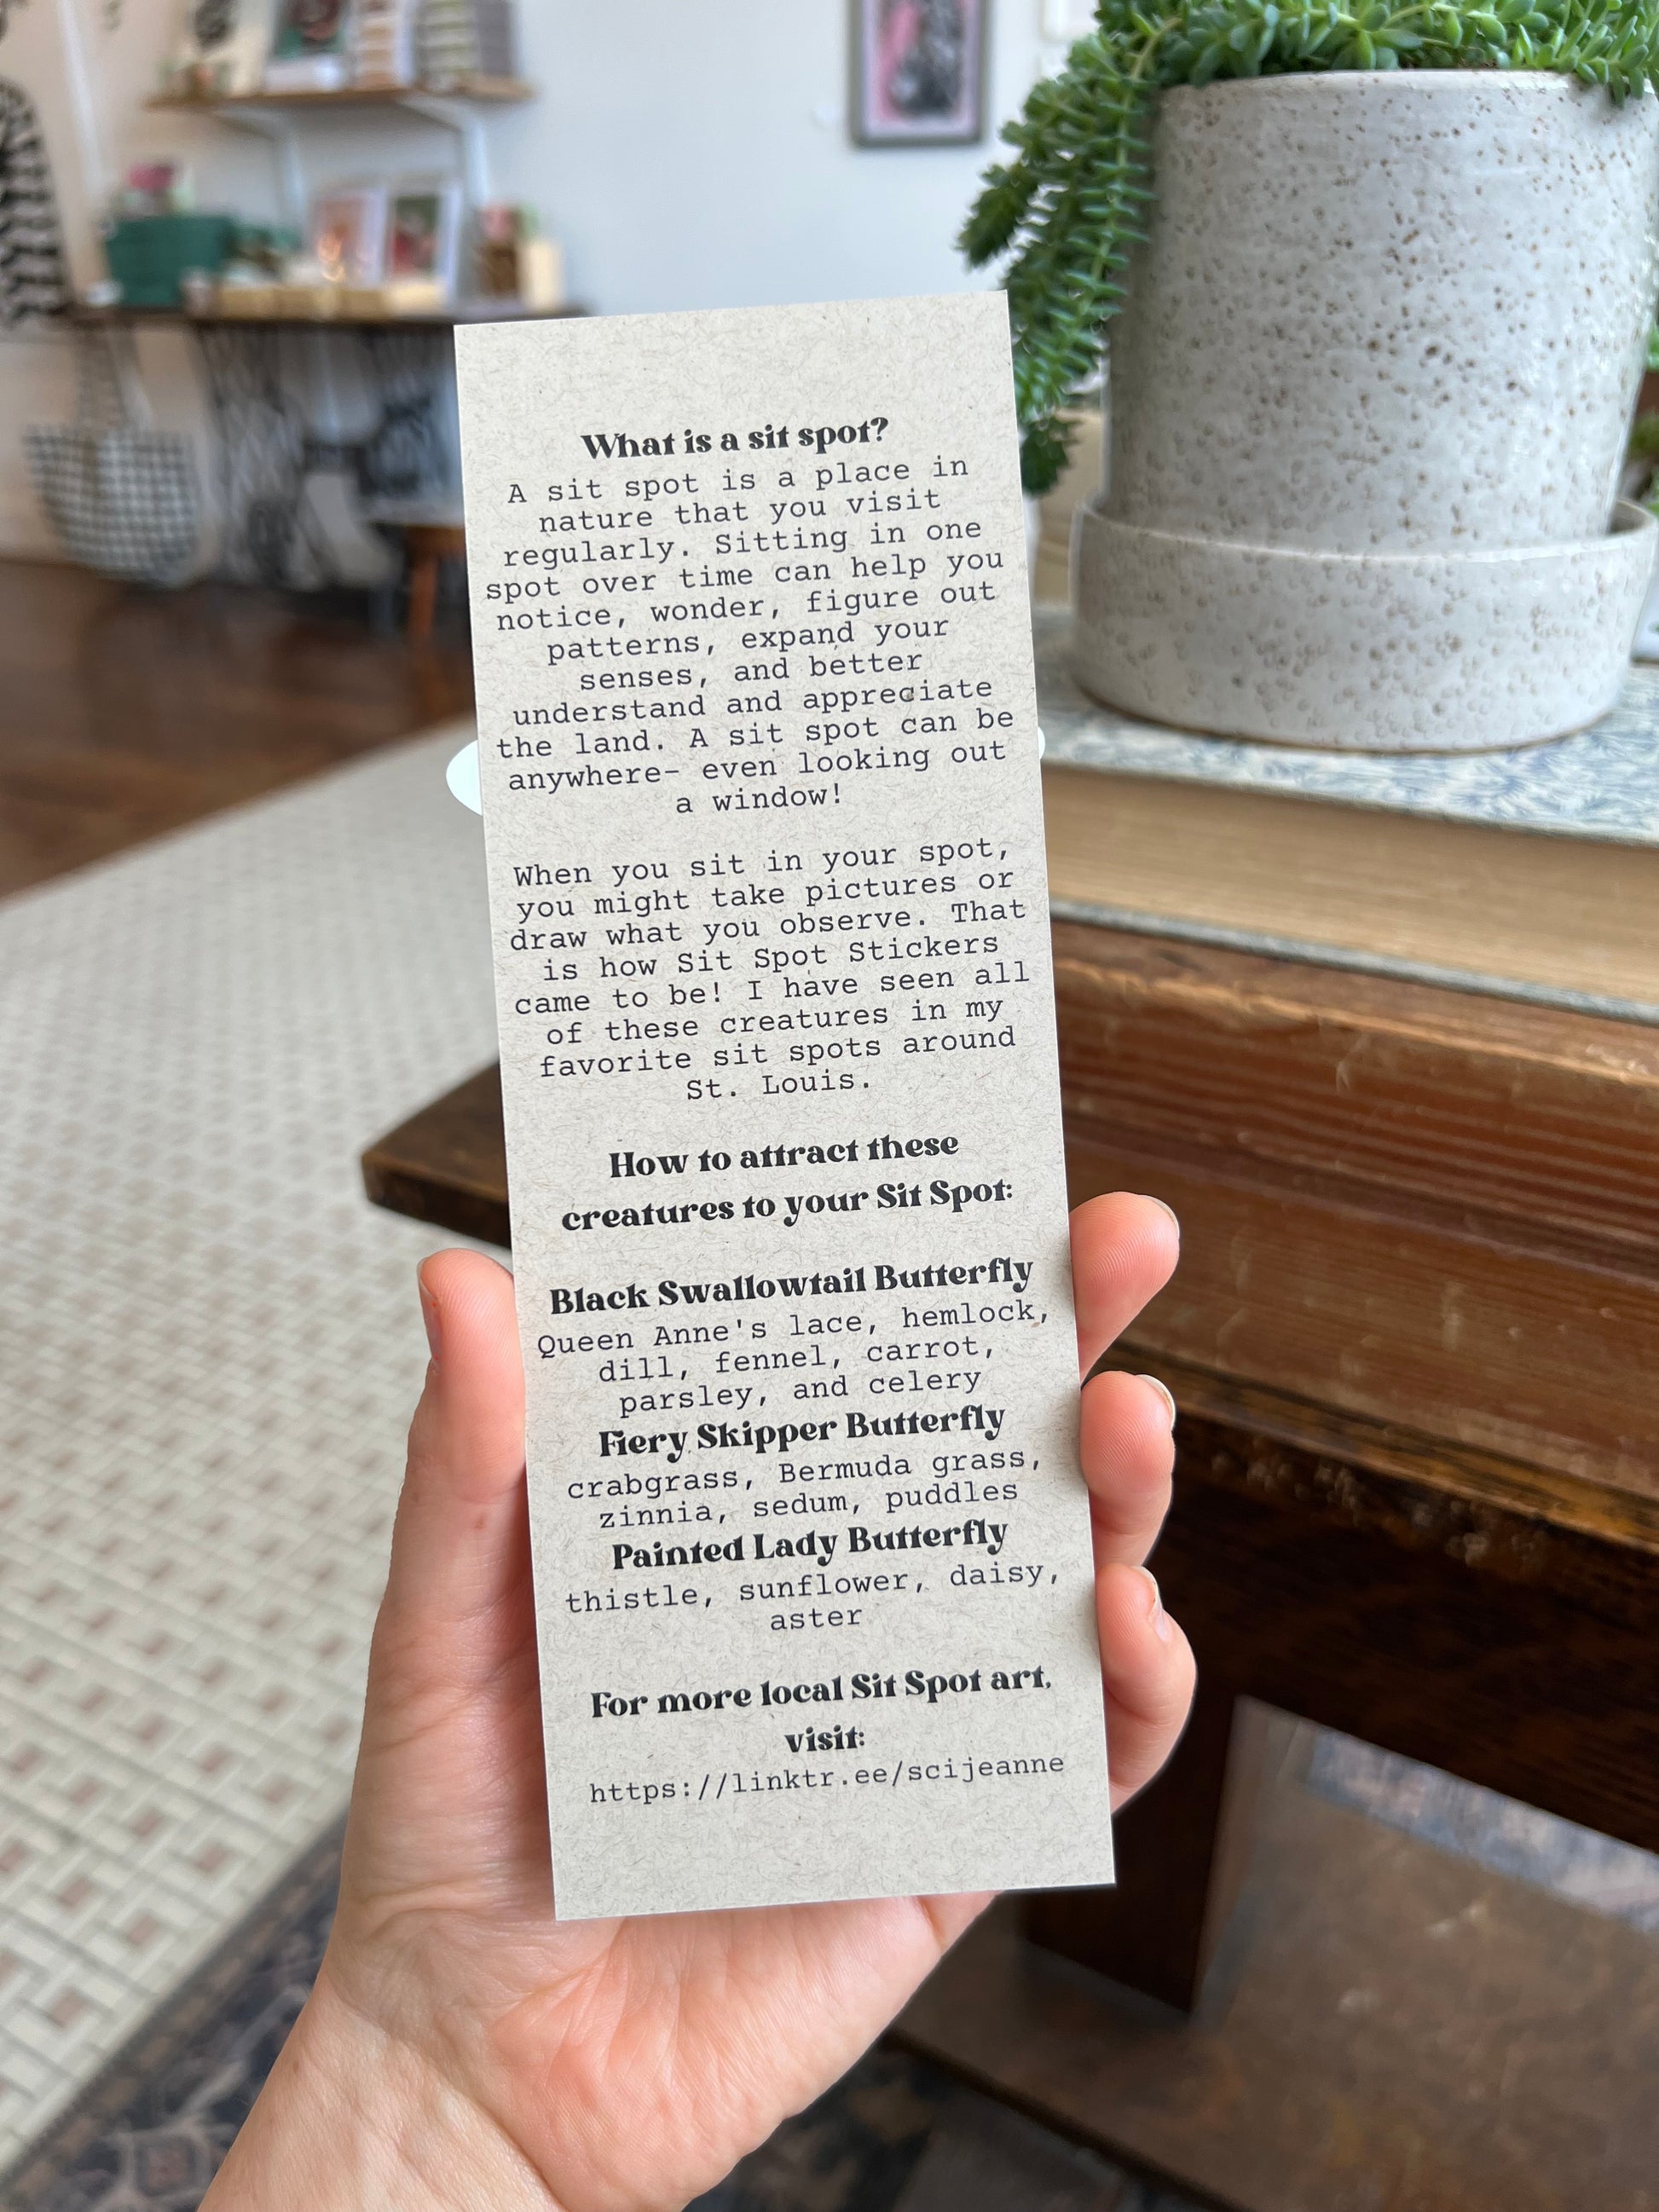 What is a sit spot?
A sit spot is a place in
nature that you visit
regularly. Sitting in one
spot over time can help you
notice, wonder, figure out
patterns, expand your
senses, and better
understand and appreciate
the land. A sit spot can be
anywhere- even looking out
a window!
When you sit in your spot,
you might take pictures or
draw what you observe. That
is how Sit Spot Stickers
came to be! I have seen all
of these creatures in my
favorite sit spots around
St. Louis.
How to attract these
creatures to your Sit Spot:
Black Swallowtail Butterfly
Queen Anne's lace, hemlock,
dill, fennel, carrot,
parsley, and celery
Fiery Skipper Butterfly
crabgrass, Bermuda grass,
zinnia, sedum, puddles
Painted Lady Butterfly
thistle, sunflower, daisy,
aster
For more local Sit Spot art,
visit:
https://linktr.ee/scijeanne